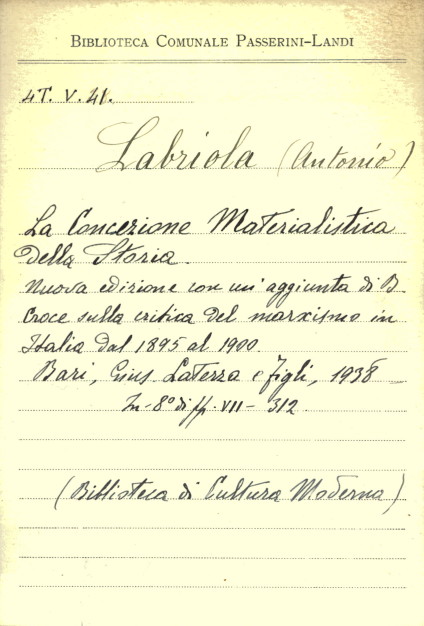 BIBLIOTECA COMUNALE PASSERINI-LANDI
4T. V. 41.
Labriola (Antonio)
La Concezione Materialistica
Della Storia.
Nuova edizione con un' aggiunta di B.
Croce sulla critica del marxismo in
Italia dal 1895 al 1900.
Bari, Gius. Laterza e Figli, 1938
In-8° di pp. VII-312.
(Biblioteca di Cultura Moderna)